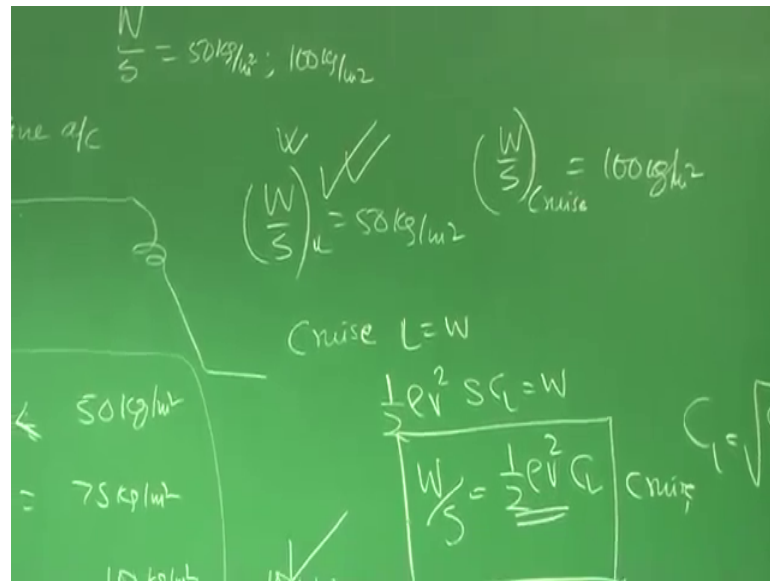 W/S = 50kg/m²; 100kg/m2
a/c
W
(W/S)L = 50kg/m2
(W/S)Cruise = 100kg/m2
Cruise L=W
1/2 ρv² SCL = W
50kg/m²
W/S = 1/2 ρv² CL Cruise,
CL = √
= 75kg/m²